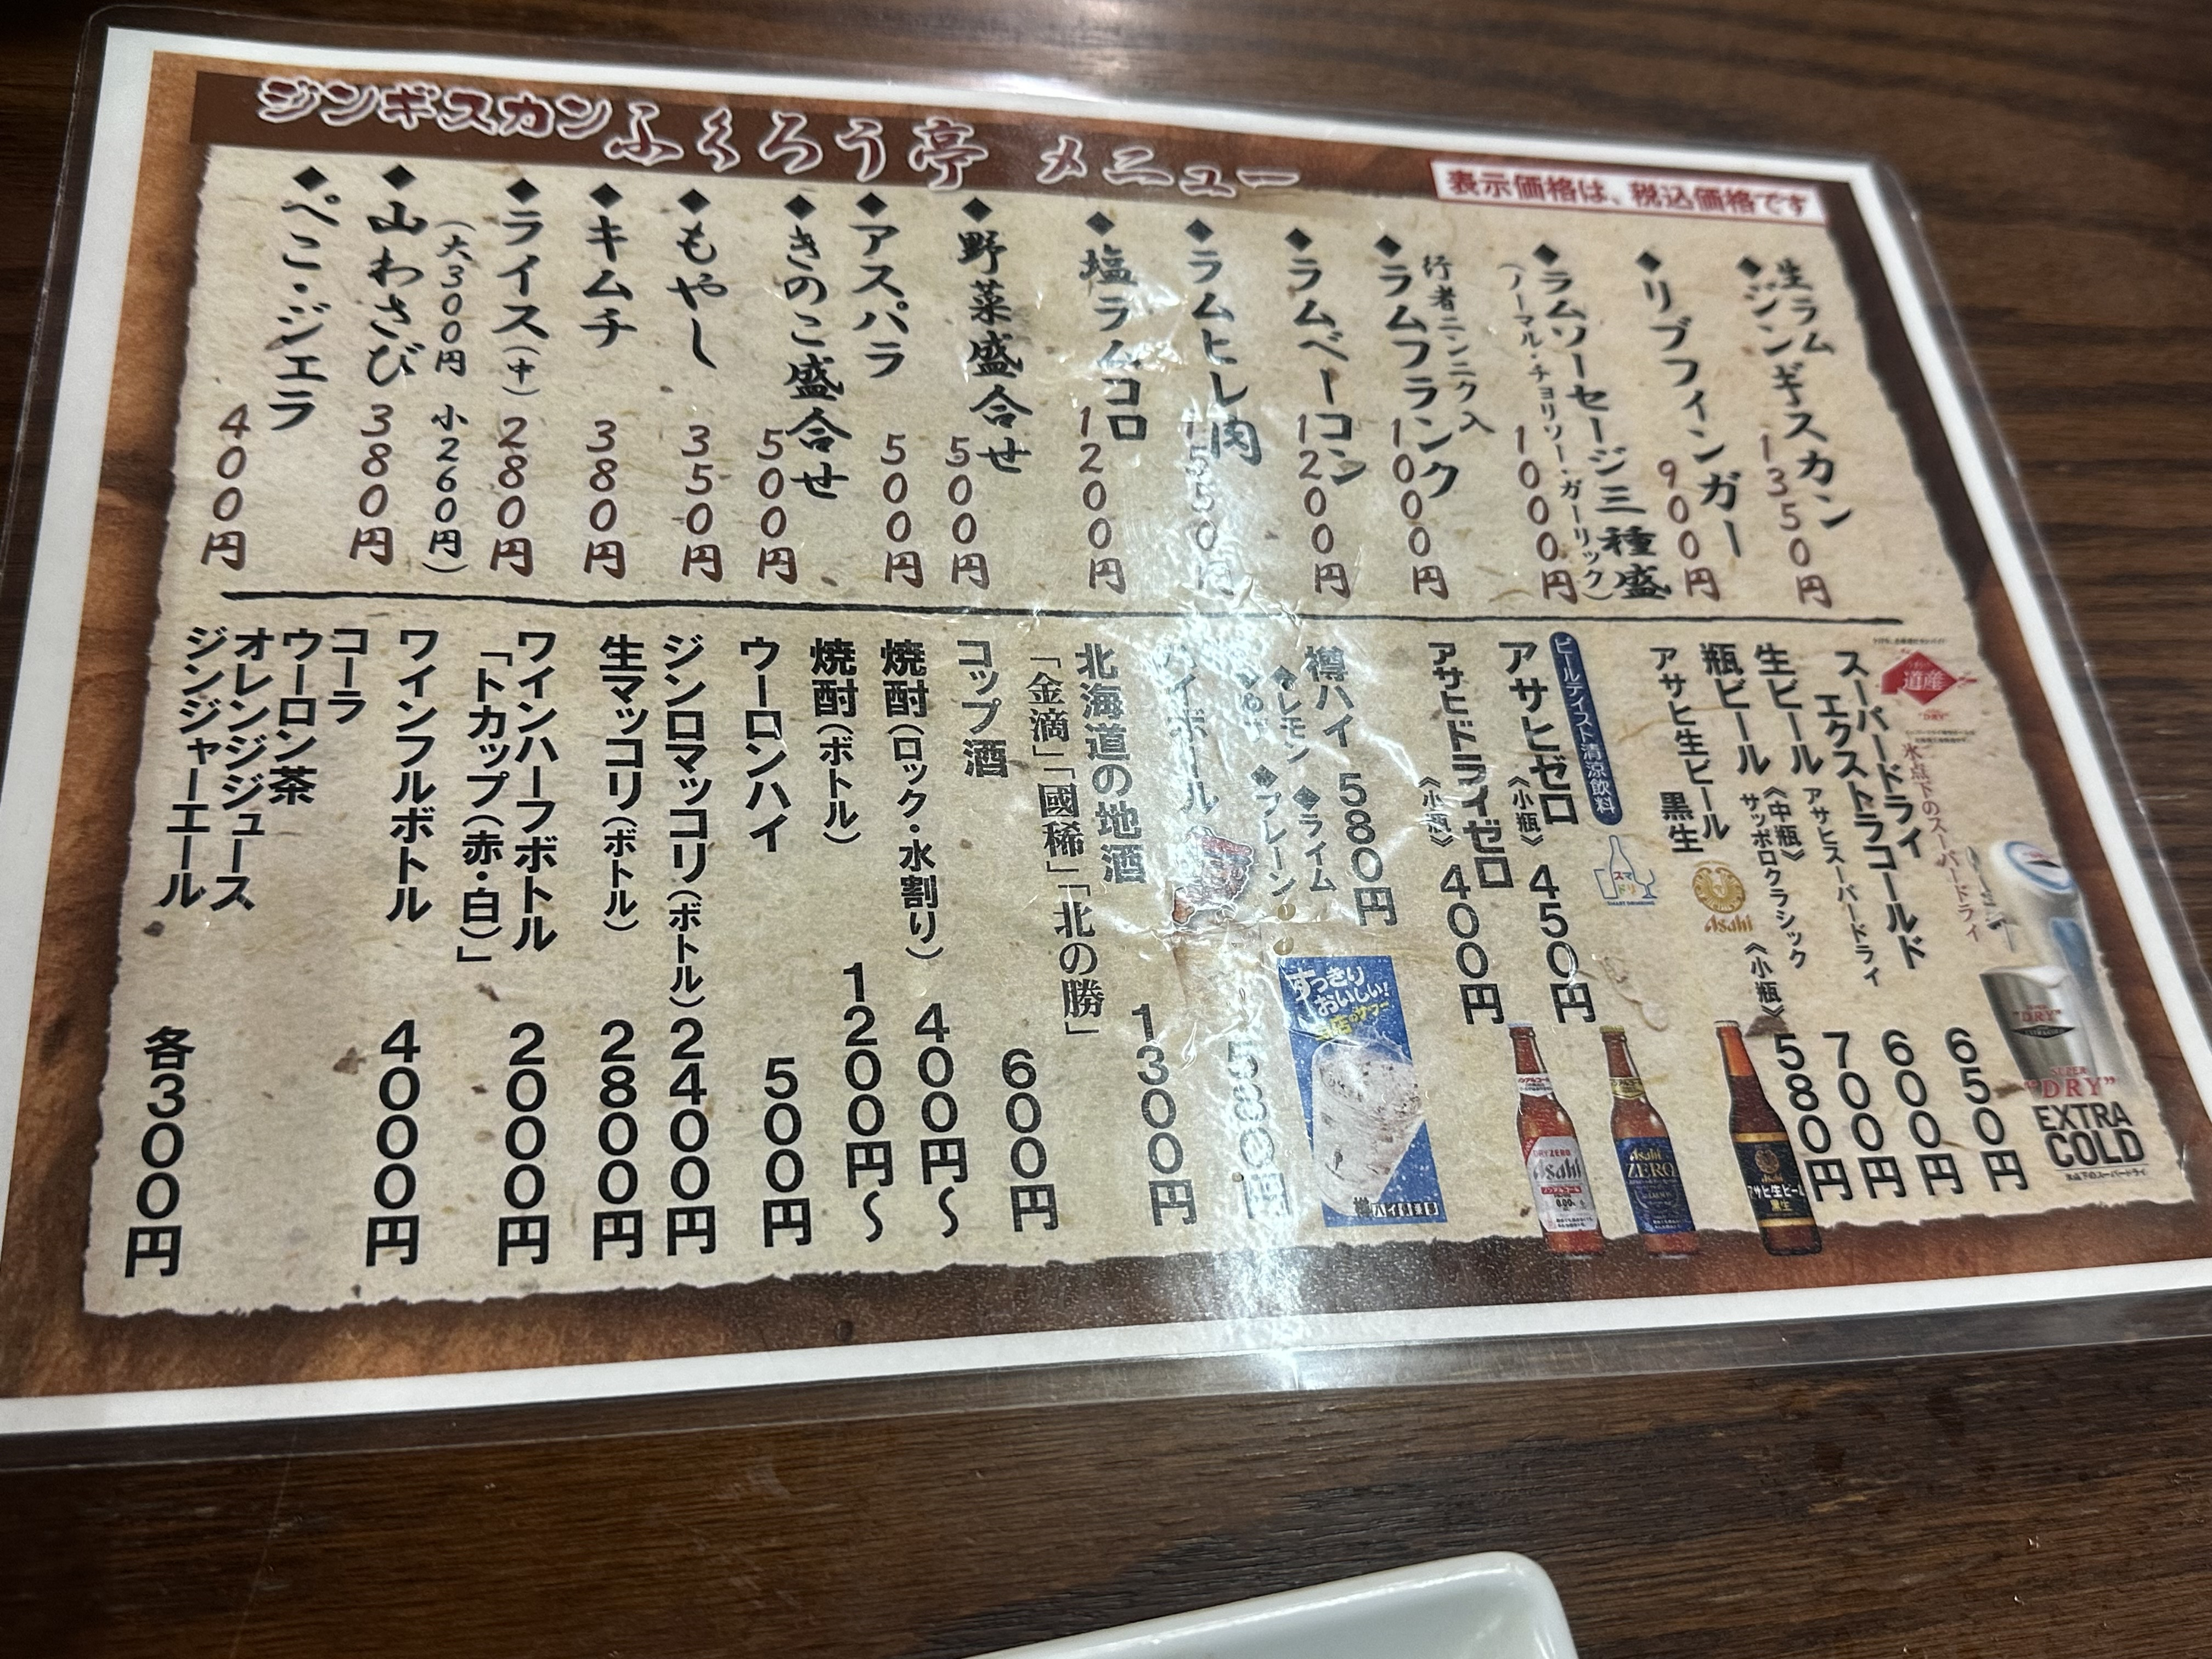 ジンギスカンふくろう亭 メニュー
表示価格は、税込価格です
◆生ラムジンギスカン 1350円
◆リブフィンガー 900円
◆ラムソーセージ三種盛 1000円
(ノーマル・チョリソー・ガーリック)
行者ニンニク入
◆ラムフランク 1000円
◆ラムベーコン 1200円
◆ラムヒレ肉
◆塩ラムコロ 1200円
◆野菜盛合せ 500円
◆アスパラ 500円
◆きのこ盛合せ 500円
◆もやし 350円
◆キムチ 380円
◆ライス(中) 280円
(大300円 小260円)
◆山わさび 380円
◆ぺこ・ジェラ 400円
道産
氷点下のスーパードライ
SUPER
"DRY"
EXTRA
COLD
氷点下のスーパードライ
スーパードライ
エクストラコールド 650円
生ビール アサヒスーパードライ 600円
瓶ビール《中瓶》サッポロクラシック 700円
アサヒ生ビール 黒生《小瓶》 580円
Asahi
アサヒ生ビール
黒生
ビールテイスト清涼飲料
スマドリ
アサヒゼロ《小瓶》 450円
アサヒドライゼロ《小瓶》 400円
Asahi
ZERO
DRY ZERO
Asahi
樽ハイ 580円
◆レモン ◆ライム
◆プレーン
すっきり
おいしい!
樽ハイ倶楽部
ハイボール
北海道の地酒 1300円
「金滴」「國稀」「北の勝」
コップ酒 600円
焼酎(ロック・水割り) 400円〜
焼酎(ボトル) 1200円〜
ウーロンハイ 500円
ジンロマッコリ(ボトル) 2400円
生マッコリ(ボトル) 2800円
ワインハーフボトル 2000円
「トカップ(赤・白)」
ワインフルボトル 4000円
コーラ
ウーロン茶
オレンジジュース
ジンジャーエール
各300円